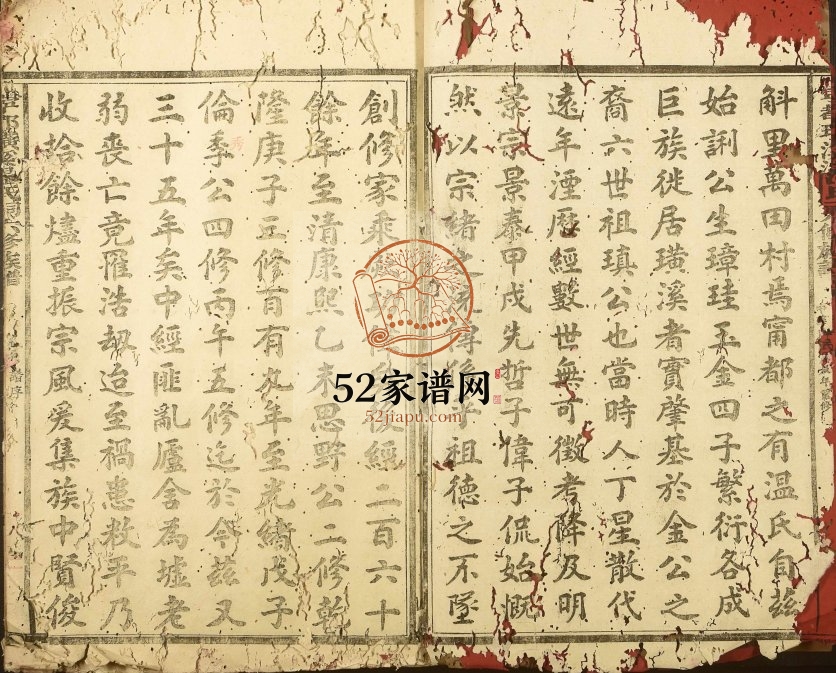 斛里萬田村焉甯都之有温氏自兹
始詗公生璋珪玉金四子繁衍各成
巨族徙居璜溪者實肇基於金公之
裔六世祖瑱公也當時人丁星散代
遠年湮歷經數世無可徵考降及明
景宗景泰甲戌先哲子偉子侃始慨
然以宗緒之祖德之不墜
創修家乘經二百六十
餘年至清康熙乙未思野公二修乾
隆庚子三修百有九年至光緒戊子
倫季公四修丙午五修迄於今茲又
三十五年矣中經匪亂廬舍為墟老
弱喪亡竟罹浩劫迨至禍患敉平乃
收拾餘燼重振宗風爰集族中賢俊
52家谱网
52jiapu.com